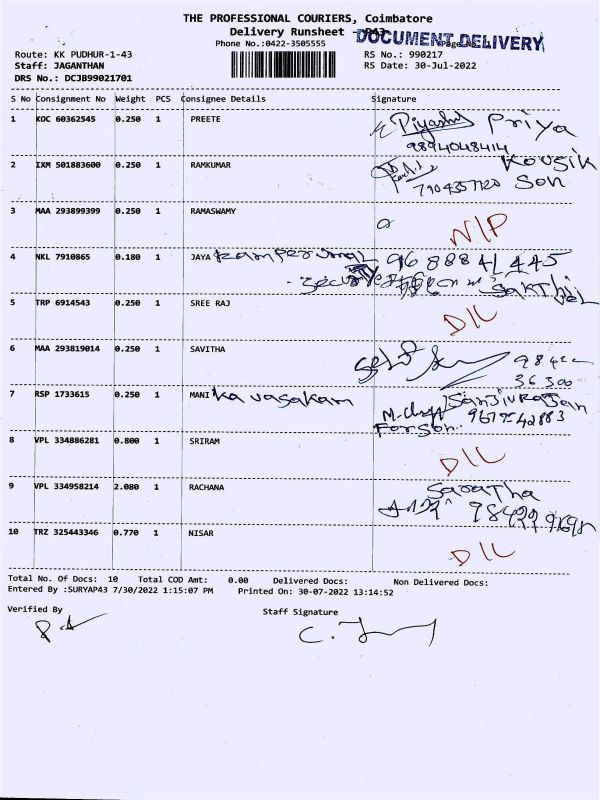 THE PROFESSIONAL COURIERS, Coimbatore
Delivery Runsheet - P43
DOCUMENT DELIVERY
Phone No.:0422-3505555
Route: KK PUDHUR-1-43
RS No.: 990217
Staff: JAGANTHAN
RS Date: 30-Jul-2022
DRS No.: DCJB99021701
S No Consignment No Weight PCS Consignee Details Signature
1 KOC 60362545 0.250 1 PREETE Priya
9894048414
2 IXM 501883600 0.250 1 RAMKUMAR Kousik
7904357120 Son
3 MAA 293899399 0.250 1 RAMASWAMY N/P
4 NKL 7910865 0.180 1 JAYA
Sakthi vel
5 TRP 6914543 0.250 1 SREE RAJ D/L
6 MAA 293819014 0.250 1 SAVITHA
36300
7 RSP 1733615 0.250 1 MANI ka vasakam
8 VPL 334886281 0.800 1 SRIRAM D/L
9 VPL 334958214 2.080 1 RACHANA Saratha
10 TRZ 325443346 0.770 1 NISAR D/L
Total No. Of Docs: 10 Total COD Amt: 0.00 Delivered Docs: Non Delivered Docs:
Entered By :SURYAP43 7/30/2022 1:15:07 PM Printed On: 30-07-2022 13:14:52
Verified By Staff Signature